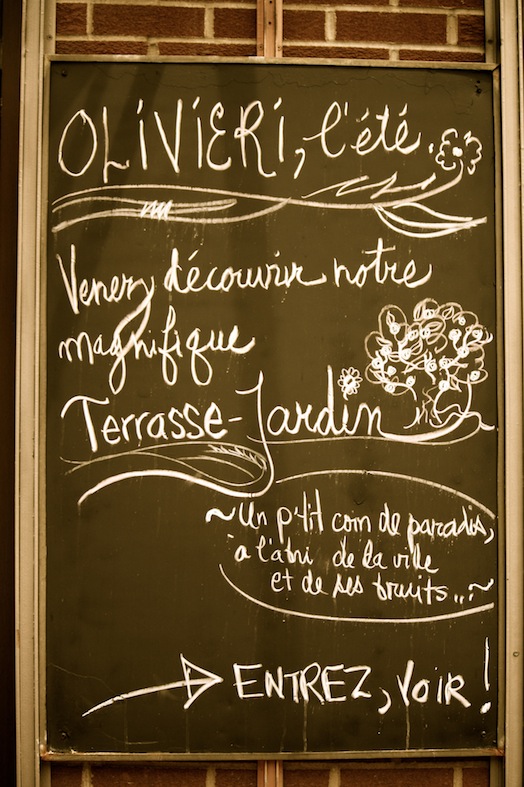 OLiViERi, l'été.
Venez découvrir notre
magnifique
Terrasse-Jardin
~ Un p'tit coin de paradis,
à l'abri de la ville
et de ses bruits...~
ENTREZ, VOIR!